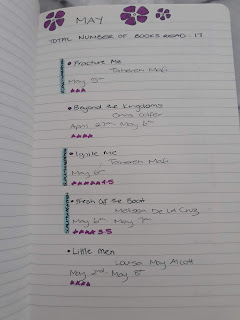 MAY
TOTAL NUMBER OF BOOKS READ : 17
• Fracture Me
Tahereh Mafi
May 5th
• Beyond the Kingdoms
Chris Colfer
April 27th May 6th
• Ignite Me
Tahereh Mafi
May 6th
4.5
• Fresh Off the Boat
Melissa De La Cruz
May 6th May 7th
3.5
• Little Men
Louisa May Alcott
May 2nd May 8th